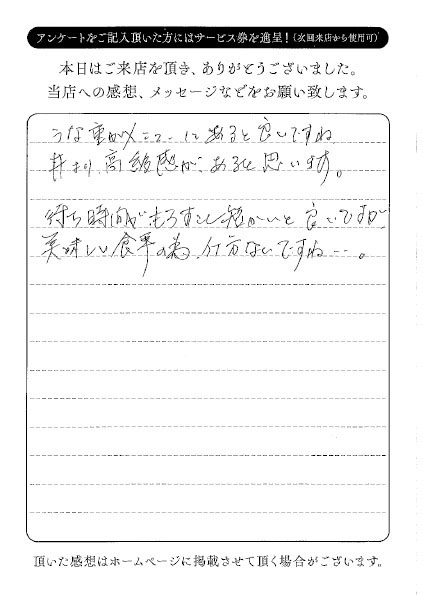 アンケートをご記入頂いた方にはサービス券を進呈!(次回来店から使用可)
本日はご来店を頂き、ありがとうございました。
当店への感想、メッセージなどをお願い致します。
うな重がメニューにあると良いですね
丼より、高級感が、あると思います。
待ち時間がもうすこし短かいと良いですが、
美味しい食事の為、仕方ないですね…。
頂いた感想はホームページに掲載させて頂く場合がございます。